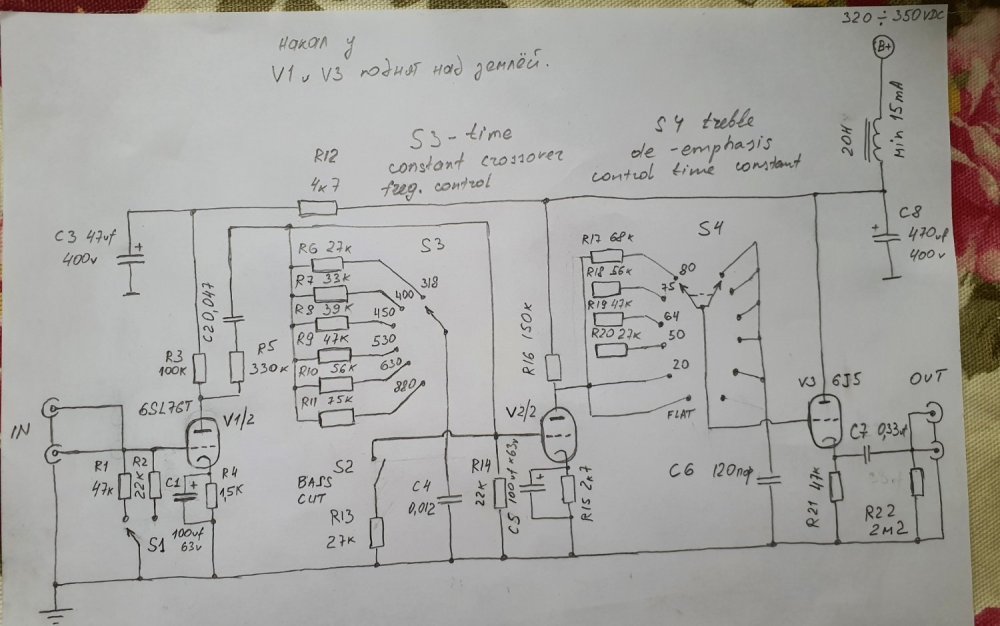 320 ÷ 350VDC
B+
накал у
V1 и V3 поднят над землёй.
20H
min 15mA
S3 - time
constant crossover
freq. control
S4 treble
de-emphasis
control time constant
R12
4к7
C3 47uf
400v
C8
470uf
400v
C2 0,047
R6 27к
R7 33к
R8 39к
R9 47к
R10 56к
R11 75к
S3
318
400
450
530
630
880
R3
100к
R5
330к
R16 150к
R17 68к
R18 56к
R19 47к
R20 27к
S4
80
75
64
50
20
FLAT
6SL7GT
V1/2
V2/2
V3 6J5
OUT
IN
R1
47к
R2
22к
C1
+
R4
1,5к
100uf
63v
S1
S2
BASS
CUT
R13
27к
C4
0,012
R14
22к
C5 100uf x 63v
R15 2к7
C6 120пф
C7 0,33uf
R21 47к
R22
2м2